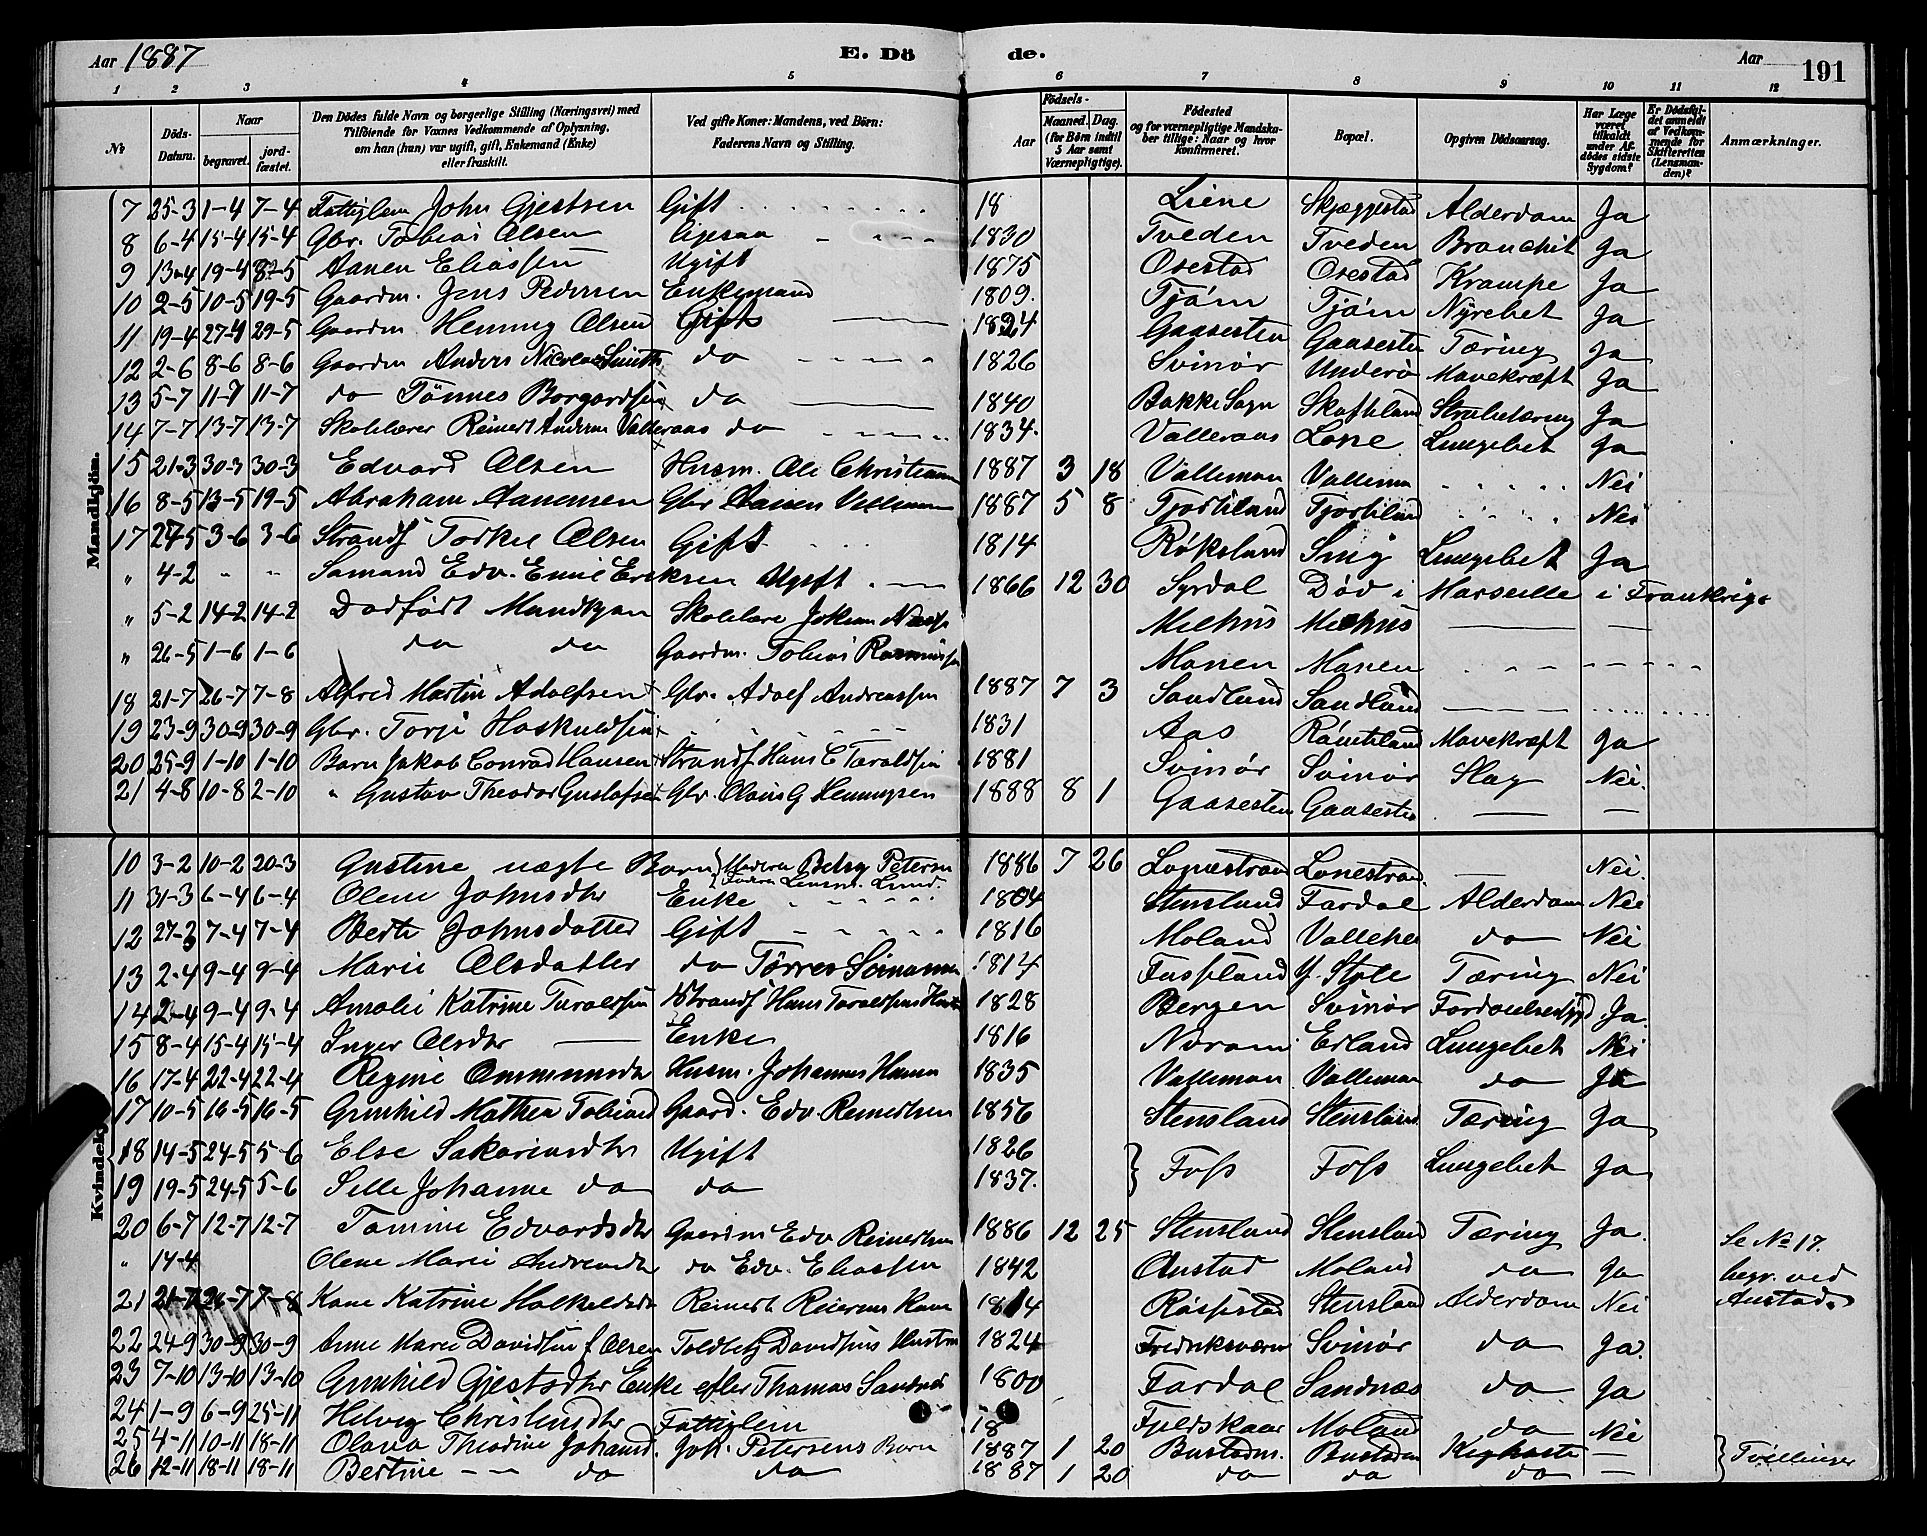 Aar 1887 E. Dö de. Aar 191
1 2 3 4 5 6 7 8 9 10 11 12
№ Döds-Datum. Naar begravet. jord-fæstet. Den Dödes fulde Navn og borgerlige Stilling (Næringsvei) med Tilföiende for Voxnes Vedkommende af Oplysning, om han (hun) var ugift, gift, Enkemand (Enke) eller fraskilt. Ved gifte Koner: Mandens, ved Börn: Faderens Navn og Stilling. Födsels- Aar Maaned. Dag. (for Börn indtil 5 Aar samt Værnepligtige). Födested og for værnepligtige Mandska-ber tillige: Naar og hvor konfirmeret. Bopæl. Opgiven Dödsaarsag. Har Læge været tilkaldt under Af-dödes sidste Sygdom? Er Dödsfal-det anmeldt af Vedkom-mende for Skifteretten (Lensman-den)? Anmærkninger.
Mandkjön.
7 25-3 1-4 7-4 Fattiglem John Gjestsen Gift 18 Liene Skjæggestad Alderdom Ja
8 6-4 15-4 15-4 Gbr. Tobias Olsen 1830 Tveden Tveden Bronchit Ja
9 13-4 19-4 Aanen Eliassen Ugift 1875 Osestad Osestad Krampe Ja
10 2-5 10-5 19-5 Gaardm. Jens Pedersen Enkemand 1809. Tjöm Tjöm Nyrebet Ja
11 19-4 27-4 29-5 Gaardm Henning Olsen Gift 1824 Gaasesten Gaasesten Tæring Ja
12 2-6 8-6 8-6 Gaardm Anders Nicolai Smith do 1826 Svinör Underö Mavekræft Ja
13 5-7 11-7 11-7 do Tönnes Borgardsen do 1840 Bakke Sogn Skofteland Strubetæring Ja
14 7-7 13-7 13-7 Skolelærer Reinert Anderns Valleraas do 1834. Valleraas Lone Lungebet Ja
15 21-3 30-3 30-3 Edvard Olsen Husm. Ole Christiansen 1887 3 18 Valleman Vallemn Nei
16 8-5 13-5 19-5 Abraham Aanensen Gbr Aanen Villumsen 1887 5 8 Fjortiland Fjortiland Nei
17 27-5 3-6 3-6 Strands Torkel Olsen Gift 1814 Röksland Snig Lungebet Ja
" 4-2 " " Sømand Edv. Emil Eriksen Ugift 1866 12 30 Syrdal Död i Marseille i Frankrig.
" 5-2 14-2 14-2 Dødfødt Mandkjøn Skolelære Jokum 	Mæhus Mæhus
" 26-5 1-6 1-6 do do Gaardm. Tobias Rasmussen Manen Manen
18 21-7 26-7 7-8 Alfred Martin Adolfsen Gbr. Adolf Andreassen 1887 7 3 Sandland Sandland
19 23-9 30-9 30-9 Gbr. Torje Haskuldsen 1831 Aas Römteland Mavekræft Ja
20 25-9 1-10 1-10 Barn Jakob Conrad Hansen Strands Hans C Taraldsen 1881 Svinör Svinör Slag Nei.
21 4-8 10-8 2-10 " Gustav Theodor Gustafsen Gbr. Olaus G Henningsen 1888 8 1 Gaasesten Gaasesten
10 3-2 10-2 20-3 Gustine uægte Barn Moderen Betsy Petersen Faderen Lensm. Lund. 1886 7 26 Lonestrand Lonestrand Nei.
11 31-3 6-4 6-4 Olene Johnsdtr Enke 1804 Stensland Fardal Alderdom Nei
12 27-3 7-4 7-4 Berte Johnsdatter Gift 1816 Moland Vallehei do Nei
13 2-4 9-4 9-4 Marie Olsdatter do Tørres Sörmannen 1814 Fuskeland Y. Stöle Tæring Nei
14 2-4 9-4 9-4 Amalie Katrine Taraldsen Strands Hans Taraldsens Hustr 1828 Bergen Svinör Ja.
15 8-4 15-4 15-4 Inger Olsdtr Enke 1816 Noram Erland Lungebet Nei
16 17-4 22-4 22-4 Regine Ommunsdtr Husm. Johannes Hansen 1835 Valleman Valleman do Ja
17 10-5 16-5 16-5 Gunhild Mathea Tobiasd Gaard. Edv Reinertsen 1856 Stensland Stensland Tæring Ja
18 14-5 24-5 5-6 Else Sakariasdtr Ugift 1826 } Foss Foss Lungebet Ja
19 19-5 24-5 5-6 Sille Johanne do do 1837.
Kvindekj
20 6-7 12-7 12-7 Tomine Edvardsdtr Gaardm Edv Reinertsen 1886 12 25 Stensland Stensland Tæring Ja. Se No 17.
" 14-4 Olene Marie Andreasdtr do Edv. Eliassen 1842 Oustad Moland do Ja begr. ved Austad.
21 21-7 26-7 7-8 Kone Katrine Holkelsdtr Reinert Reiersens Kone 1814 Røssestad Stensland Alderdom Nei
22 24-9 30-9 30-9 Anne Marie Davidsen f. Olsen Toldbetj Davidsens Hustru 1824 Fredriksværn Svinör do Ja.
23 7-10 13-10 13-10 Gunhild Gjestsdtr Enke efter Thomas Sandnes 1800 Fardal Sandnæs do Ja
24 1-9 6-9 25-11 Helvig Christensdtr Fattiglem 18 Fjeldskaar Moland do Nei
25 4-11 10-11 18-11 Olava Theodine Johansd. Joh. Petersens Barn 1887 1 20 Bustadm. Bustadm Kighoste — } Tvillinger
26 12-11 18-11 18-11 Bertine — — do do 1887 1 20 do do do —